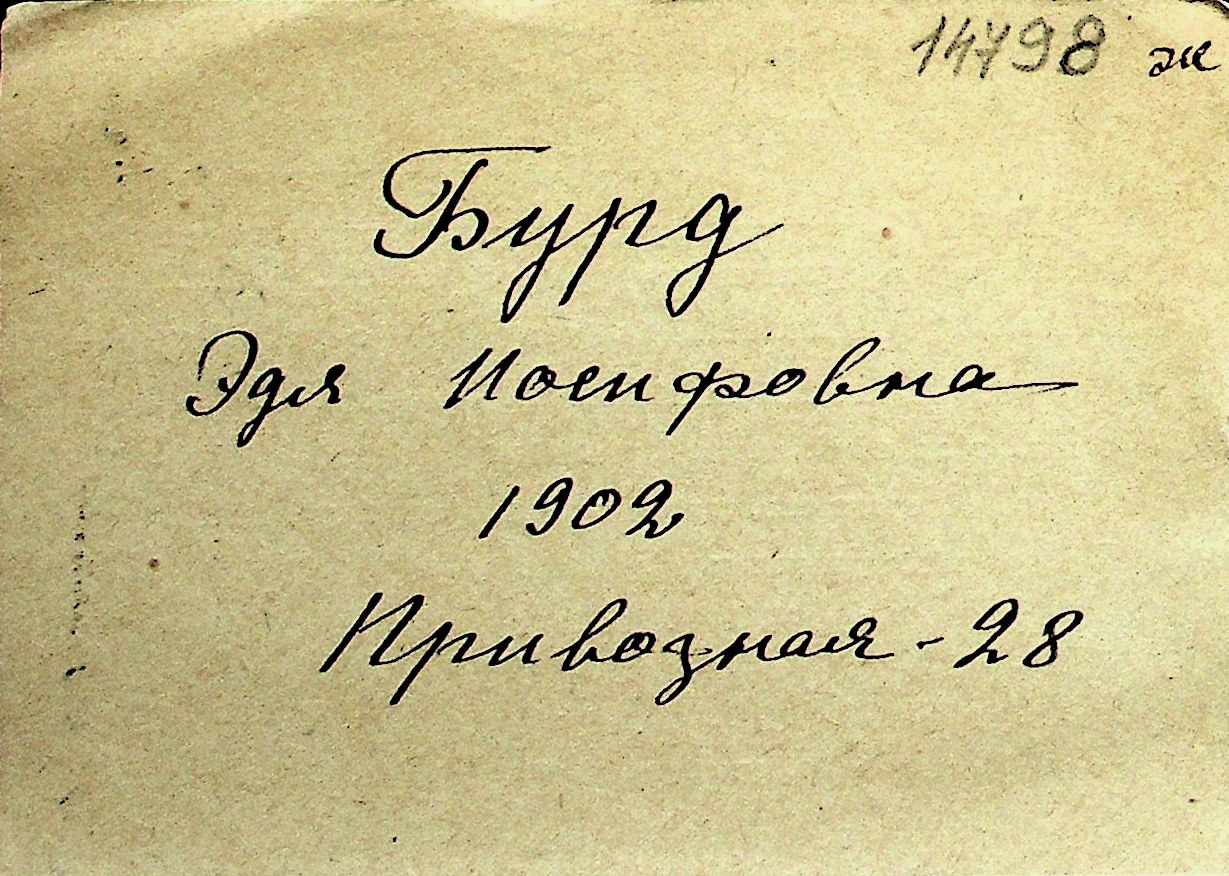 14798 ж
Бурд
Эдля Иосифовна
1902
Привозная - 28